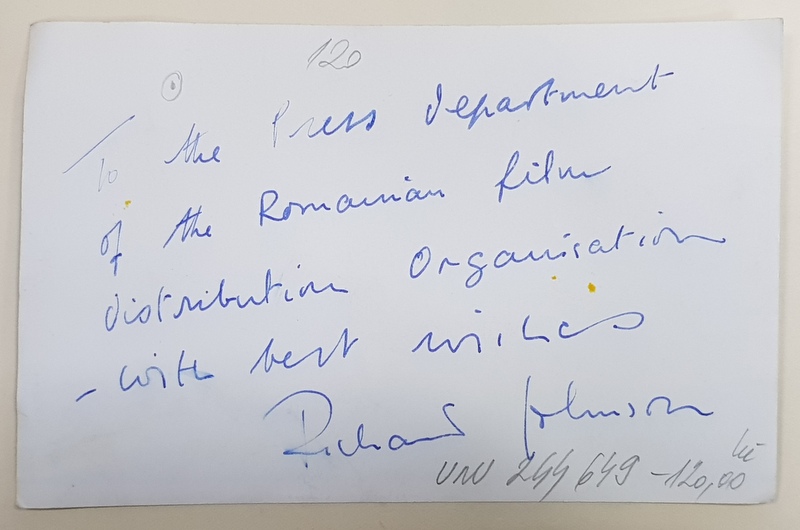 120
To the Press department
of the Romanian film
distribution Organisation
- with best wishes
Richard Johnson
244 649 -120,00 lei